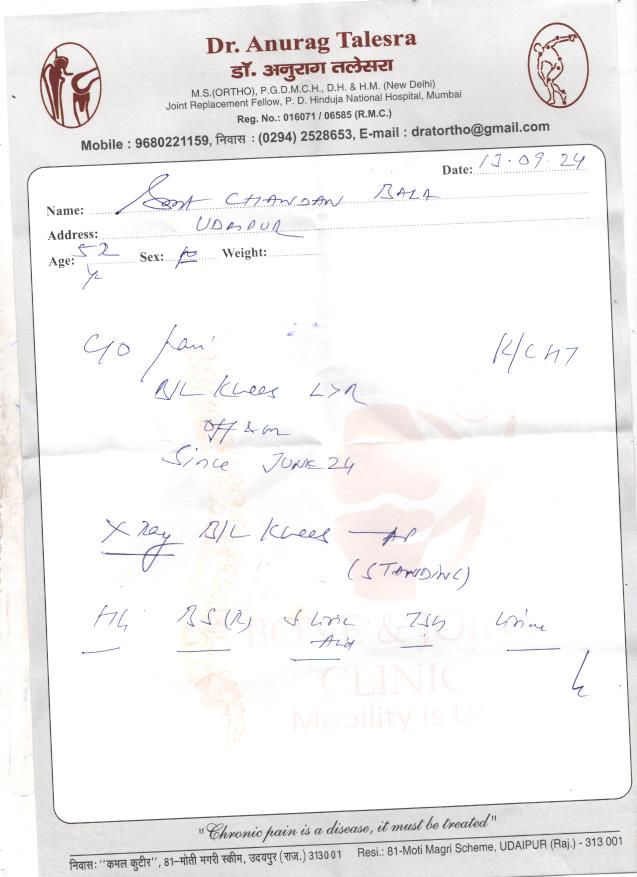 Dr. Anurag Talesra
डॉ. अनुराग तलेसरा
M.S.(ORTHO), P.G.D.M.C.H., D.H. & H.M. (New Delhi)
Joint Replacement Fellow, P. D. Hinduja National Hospital, Mumbai
Reg. No.: 016071 / 06585 (R.M.C.)
Mobile : 9680221159, निवास : (0294) 2528653, E-mail : dratortho@gmail.com
Date: 13.09.24
Name: Smt CHANDAN BALA
Address: UDAIPUR
Age: 52 Sex: F Weight:
Yr
C/O pain
K/C HT
B/L Knees L>R
off & on
Since JUNE 24
X Ray B/L Knees — AP
(STANDING)
Hb BS(R) S Uric TSH Urine
Acid
BONE & JOINT
CLINIC
Mobility is Li
"Chronic pain is a disease, it must be treated"
निवास: "कमल कुटीर", 81-मोती मगरी स्कीम, उदयपुर (राज.) 313001 Resi.: 81-Moti Magri Scheme, UDAIPUR (Raj.) - 313 001